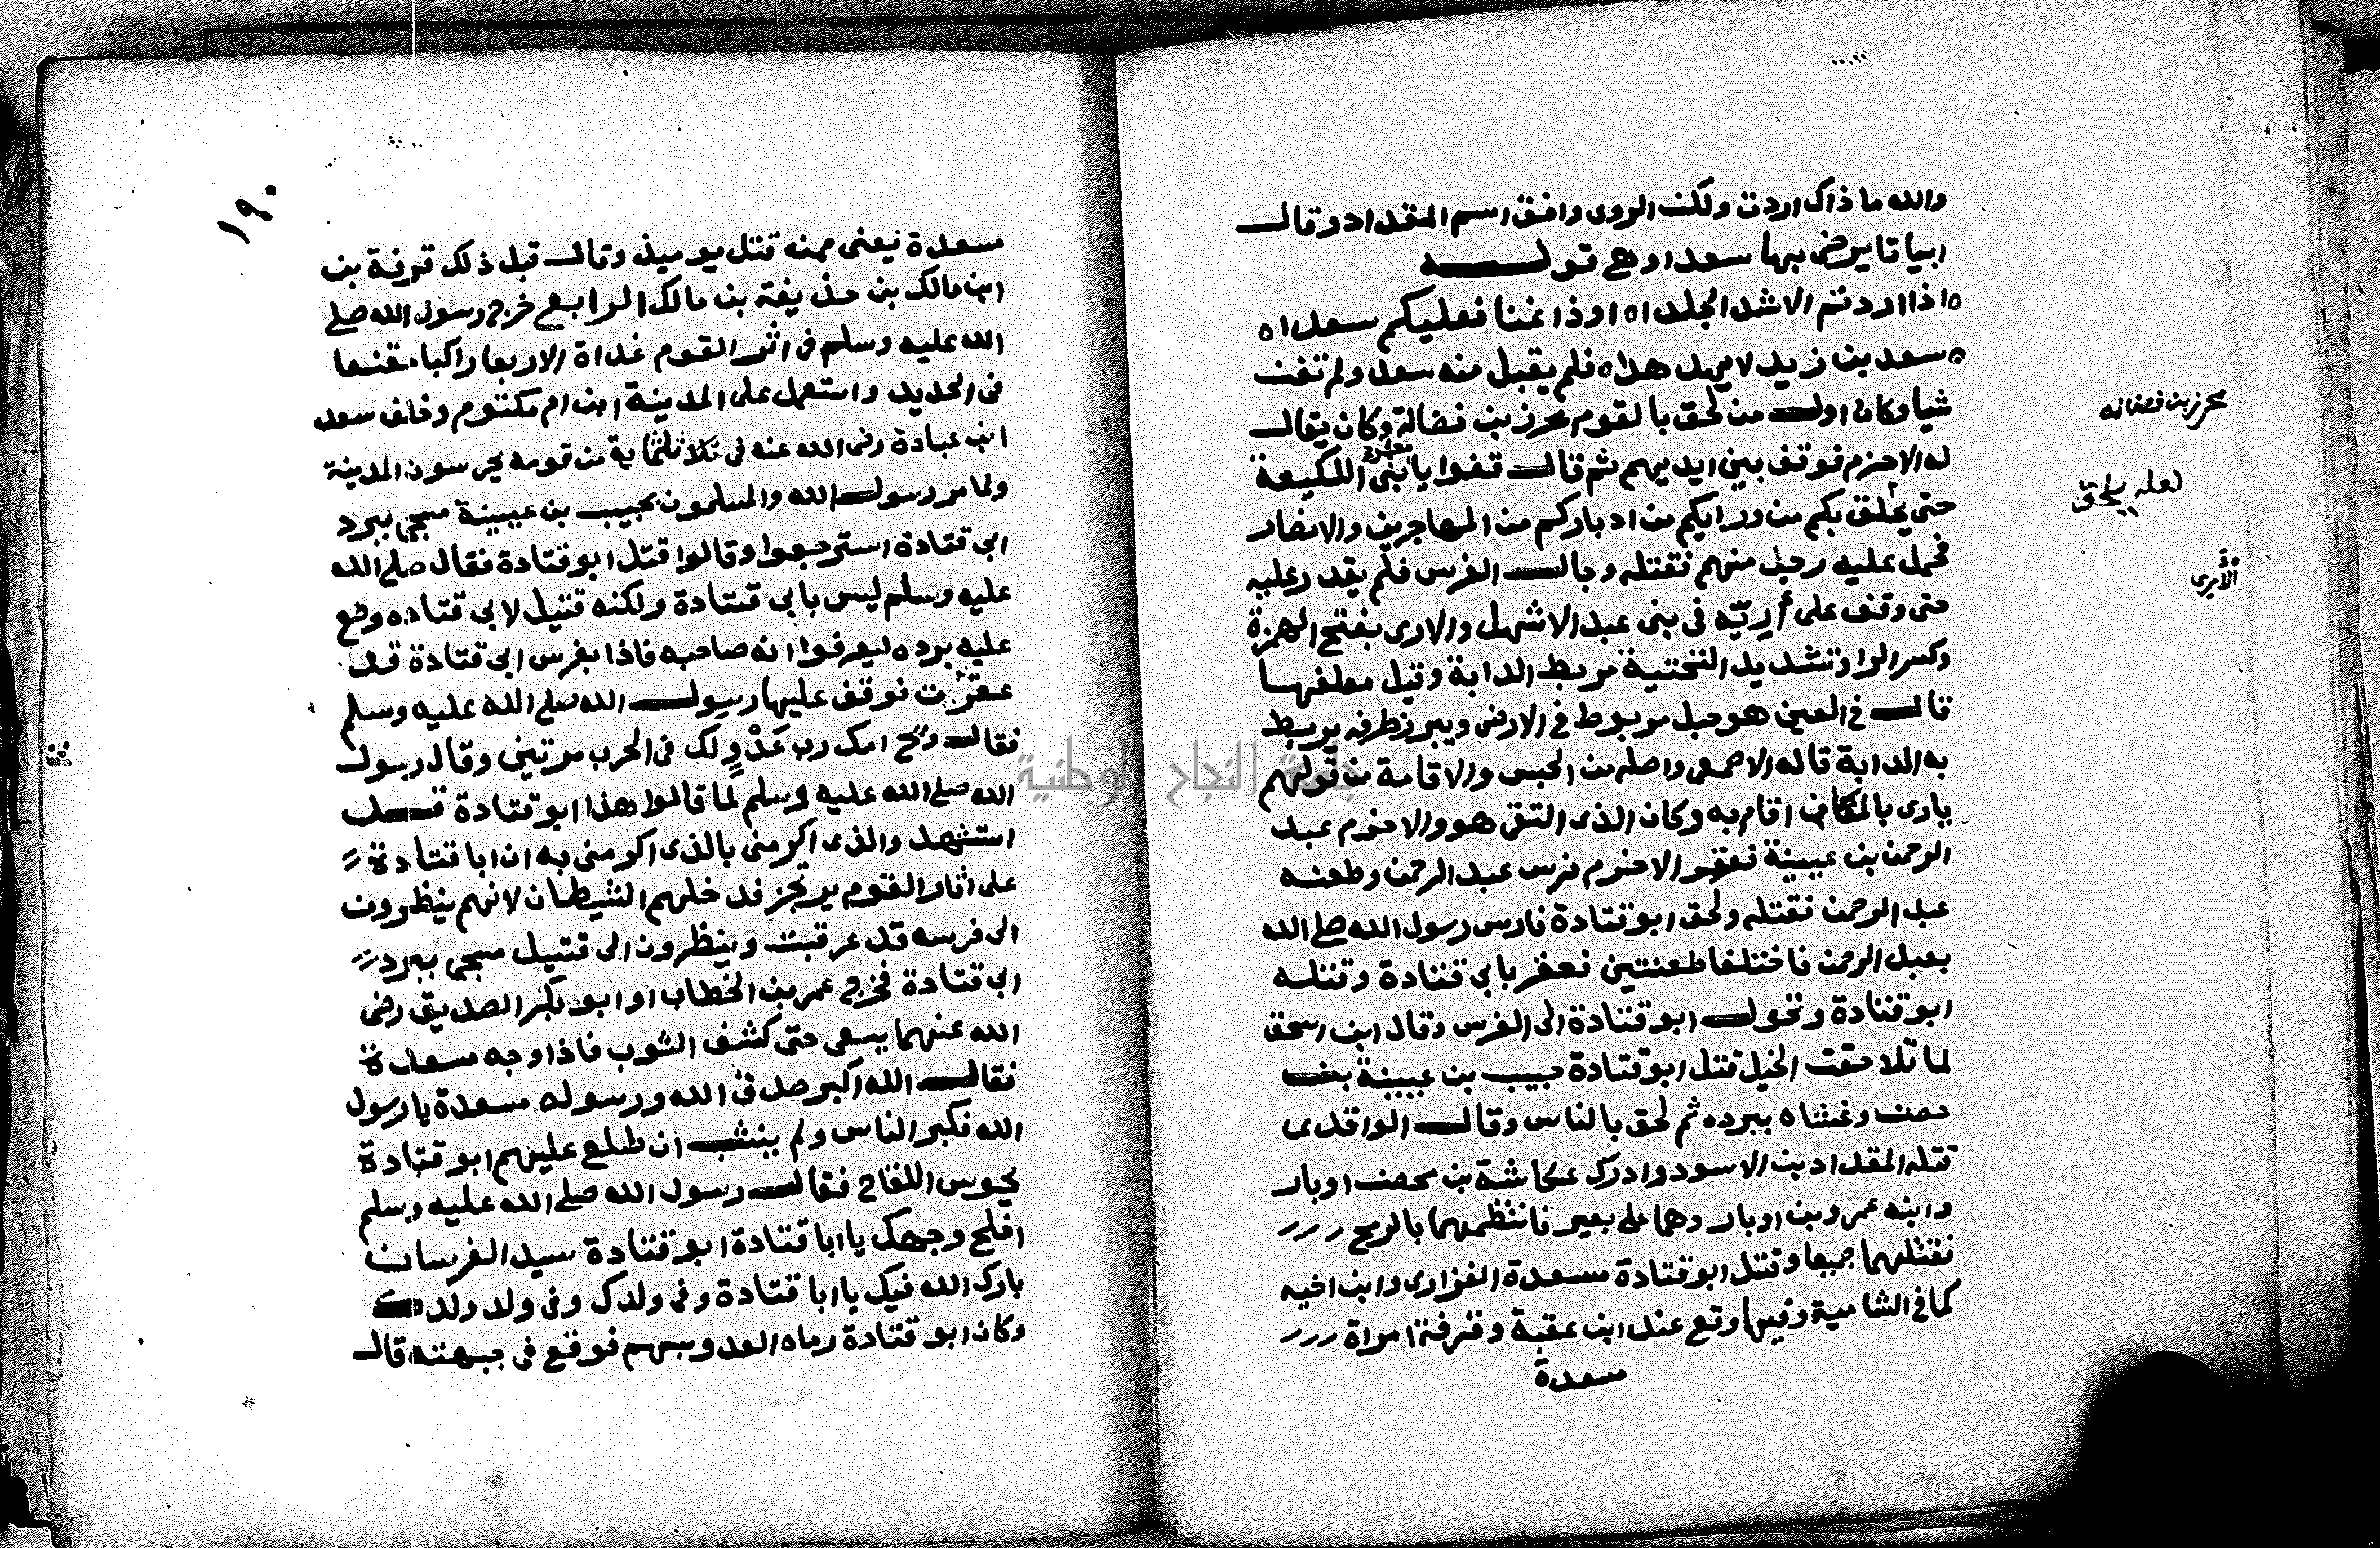 والله ما ذاك اردت ولكن الروى وافق اسم المقداد وقال
ابياتا يرضى بها سعدا وهى قوله
اذا اردتم الاشد الجلدا ه اوذا غنا فعليكم سعدا ه
سعد بن زيد لا يهد هدا ه فلم يقبل منه سعد ولم تغن
شيا وكان اول من لحق بالقوم محرز بن فضالة وكان يقال
له الاخرم فوقف بين ايديهم ثم قال قفوا يا بنى اللكيعة
حتى يلحق بكم من ورايكم من ادباركم من المهاجرين والانصار
فحمل عليه رجل منهم فقتله وجال الفرس فلم يقدر عليه
حتى وقف على أرِيّه فى بنى عبد الاشهل والارى بفتح الهمزة
وكسر الرا وتشديد التحتية مربط الدابة وقيل معلفها
قال فى العين هو حبل مربوط فى الارض ويبرز طرفه يربط
به الدابة قاله الاصمعى واصله من الحبس والاقامة من قولهم
يارى بالمكان اقام به وكان الذى التقى هو والاخرم عبد
الرحمن بن عيينة فعقر الاخرم فرس عبد الرحمن وطعنه
عبد الرحمن فقتله ولحق ابو قتادة فارس رسول الله صلى الله
بعبد الرحمن فاختلفا طعنتين فعقر بابى قتادة وقتله
ابو قتادة وتحول ابو قتادة الى الفرس وقال ابن اسحق
لما تلاحقت الخيل قتل ابو قتادة حبيب بن عيينة بن
حصن وغشاه ببرده ثم لحق بالناس وقال الواقدى
قتله المقداد بن الاسود وادرك عكاشة بن محصن اوبار
وابنه عمرو بن اوبار وهما على بعير فانتظمهما بالرمح
فقتلهما جميعا وقتل ابو قتادة مسعدة الفزارى وابن اخيه
كما فى الشامية وفيها وقع عند ابن عقبة وقرفة امراة
مسعدة
محرز بن فضاله
لعله يلحق
الأرى
١٩٠
مسعدة يعنى ممن قتل يوميذ وقال قبل ذلك قرفة بن
ابن مالك بن حذيفة بن مالك الرابع خرج رسول الله صلى
الله عليه وسلم فى اثر القوم غداة الاربعا راكبا مقنعا
فى الحديد واستعمل على المدينة ابن ام مكتوم وخلف سعد
ابن عبادة رضى الله عنه فى ثلاثماية من قومه يحرسون المدينة
ولما مر رسول الله والمسلمون بحبيب بن عيينة مسجى ببرد
ابى قتادة استرجعوا وقالوا قتل ابو قتادة فقال صلى الله
عليه وسلم ليس بابى قتادة ولكنه قتيل لابى قتاده وضع
عليه برده ليعرفوا انه صاحبه فاذا بفرس ابى قتادة قد
عقرت فوقف عليها رسول الله صلى الله عليه وسلم
فقال ويح امك رب عَدْوٍ لك فى الحرب مرتين وقال رسول
الله صلى الله عليه وسلم لما قالوا هذا ابو قتادة قد
استشهد والذى اكرمنى بالذى اكرمنى به ان ابا قتادة
على اثار القوم يرتجز فدخلهم الشيطان لانهم ينظرون
الى فرسه قد عرقبت وينظرون الى قتيل مسجى ببرد
ابى قتادة فخرج عمر بن الخطاب او ابو بكر الصديق رضى
الله عنهما يسعى حتى كشف الثوب فاذا وجه مسعدة
فقال الله اكبر صدق الله ورسوله مسعدة يا رسول
الله فكبر الناس ولم ينشب ان طلع عليهم ابو قتادة
يحوس اللقاح فقال رسول الله صلى الله عليه وسلم
افلح وجهك يا ابا قتادة ابو قتادة سيد الفرسان
بارك الله فيك يا ابا قتادة وفى ولدك وفى ولد ولدك
وكان ابو قتادة رماه العدو بسهم فوقع فى جبهته قال
جامعة النجاح الوطنية